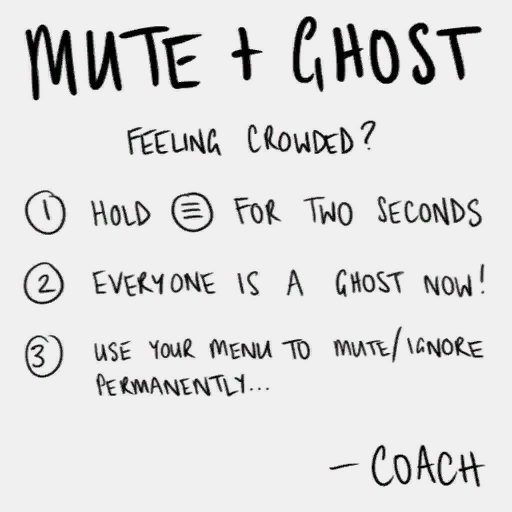 MUTE + GHOST
FEELING CROWDED?
1 HOLD ☰ FOR TWO SECONDS
2 EVERYONE IS A GHOST NOW!
3 USE YOUR MENU TO MUTE/IGNORE
PERMANENTLY...
— COACH